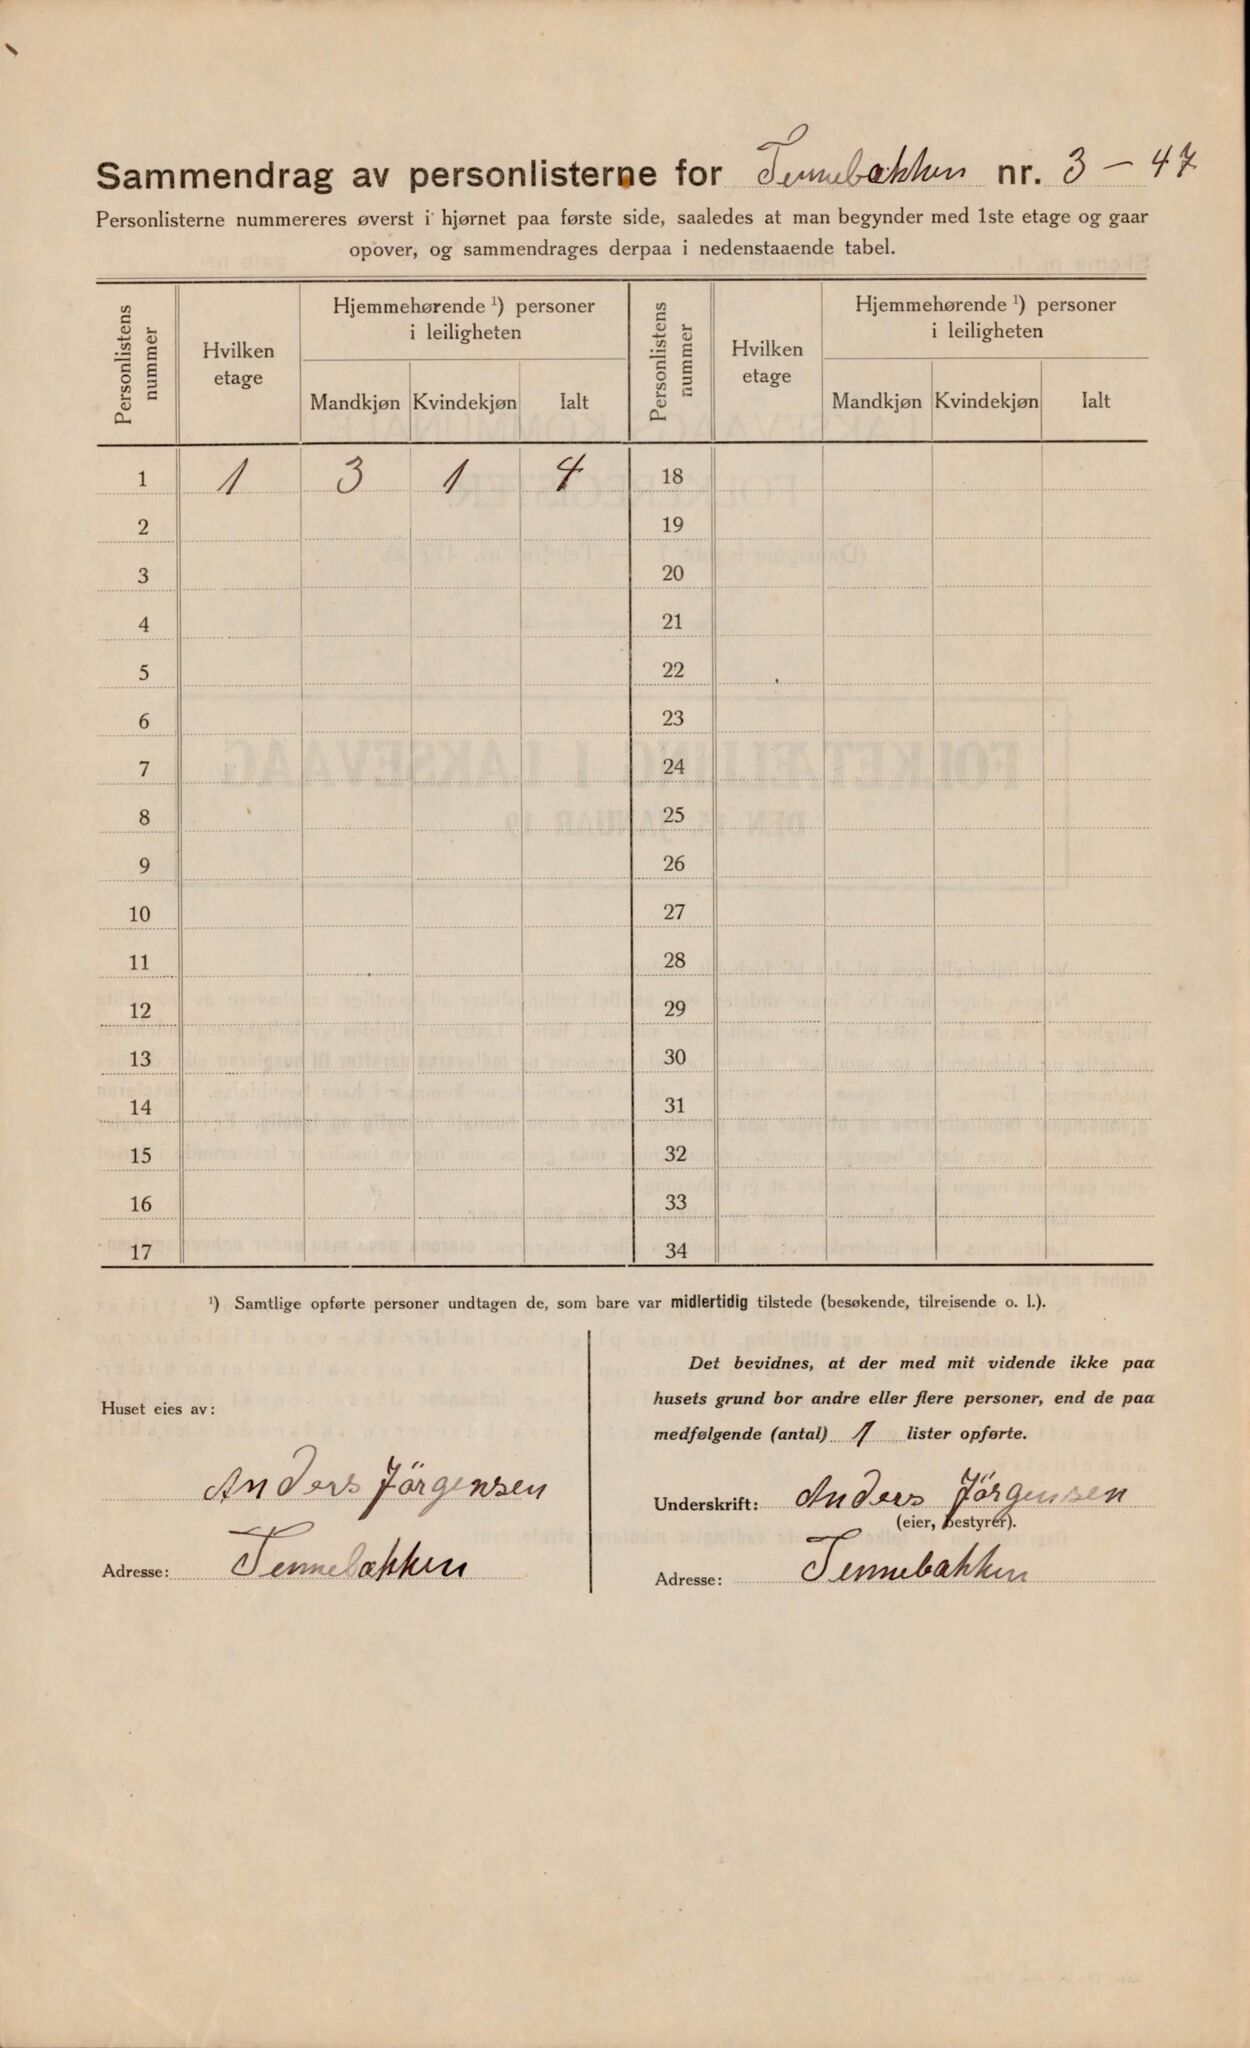 Sammendrag av personlisterne for Tennebækken nr. 3 - 47
Personlisterne nummereres øverst i hjørnet paa første side, saaledes at man begynder med 1ste etage og gaar
opover, og sammendrages derpaa i nedenstaaende tabel.
Personlistens nummer
Hvilken etage
Hjemmehørende ¹) personer
i leiligheten
Mandkjøn Kvindekjøn Ialt
Personlistens nummer
Hvilken etage
Hjemmehørende ¹) personer
i leiligheten
Mandkjøn Kvindekjøn Ialt
1 1 3 1 4 18
2 19
3 20
4 21
5 22
6 23
7 24
8 25
9 26
10 27
11 28
12 29
13 30
14 31
15 32
16 33
17 34
¹) Samtlige opførte personer undtagen de, som bare var midlertidig tilstede (besøkende, tilreisende o. l.).
Huset eies av:
Anders Jörgensen
Adresse: Tennebækken
Det bevidnes, at der med mit vidende ikke paa
husets grund bor andre eller flere personer, end de paa
medfølgende (antal) 1 lister opførte.
Underskrift: Anders Jörgensen
(eier, bestyrer).
Adresse: Tennebækken